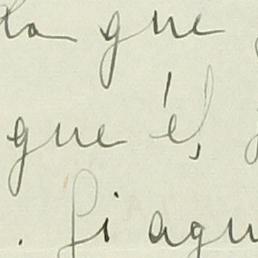 da que
que él,
. Si aqu